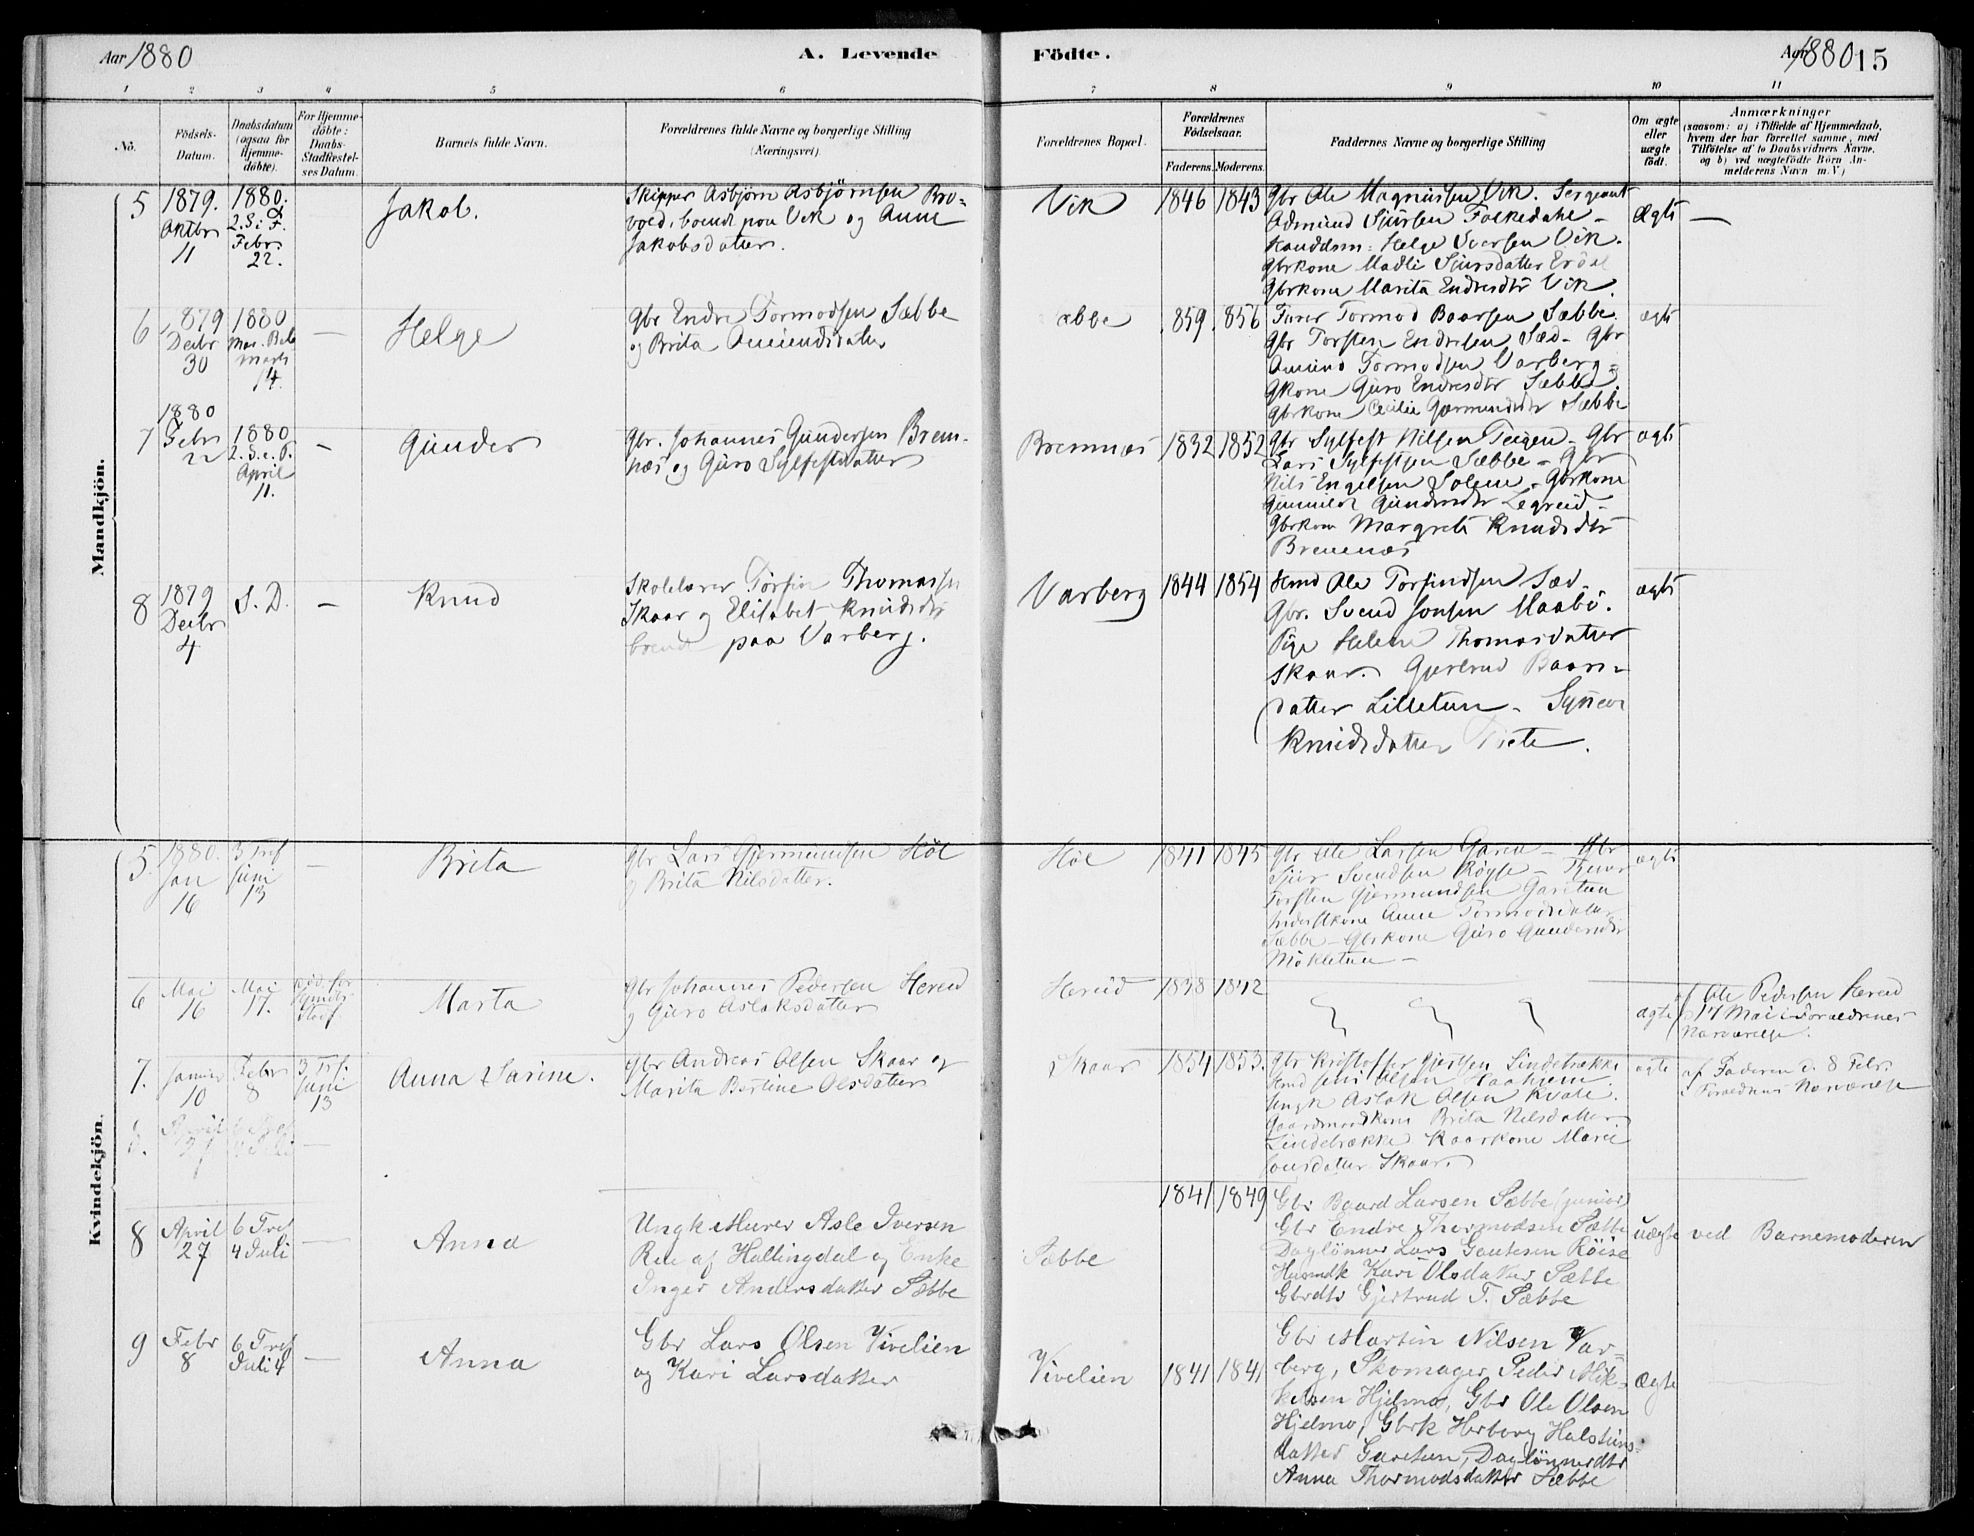 Aar 1880
A. Levende
Födte.
Aar 1880 15
1 2 3 4 5 6 7 8 9 10 11
No.
Födsels-
Datum.
Daabsdatum
(ogsaa for
Hjemme-
döbte).
For Hjemme-
döbte:
Daabs-
Stadfæstel-
ses Datum.
Barnets fulde Navn.
Forældrenes fulde Navne og borgerlige Stilling
(Næringsvei).
Forældrenes Bopæl.
Forældrenes
Födselsaar.
Faderens. Moderens.
Faddernes Navne og borgerlige Stilling
Om ægte
eller
uægte
födt.
Anmærkninger
(saasom: a) i Tilfælde af Hjemmedaab,
hvem der har forrettet samme, med
Tilföielse af to Daabsvidners Navne,
og b) ved uægtefödte Börn An-
melderens Navn m. V.)
Mandkjön.
5
1879.
Oktbr
11
1880.
2. S. i F.
Febr
22.
Jakob.
Skipper Asbjørn Asbjørnsen Bro-
vold, boende paa Vik og Anne
Jakobsdatter.
Vik
1846 1843
Gbr Ole Magnussen Vik. Sergeant
Admund Sjursen Folkedahl -
Handelsm: Helge Iversen Vik.
Gbrkone Madli Sjursdatter Erdal
Gbrkone Marita Endresdtr Vik.
Ægte —
6
1879
Decbr
30
1880
Mar. Beb
Marts
14.
—
Helge
Gbr Endre Tormodsen Sæbbe
og Brita Amundsdatter
Sæbbe
1859 1856
Furer Tormod Baarsen Sæbbe
Gbr Torsten Endresen Sæd - Gbr
Amund Tormodsen Varberg -
Gkone Guro Endresdtr Sæbbe.
Gbrkone Cecilie Gjermundsdtr Sæbbe
ægte
7
1880
Febr
22
1880
2. S. e. P.
April
11.
—
Gunder
Gbr. Johannes Gundersen Brem-
næs og Guro Sylfestdatter
Bremnæs
1832 1852
Gbr Sylfest Nilsen Teigen - Gbr
Lars Sylfestsen Sæbbe - Gbr
Nils Engelsen Solem - Gbrkone
Gunnild Gundersdtr Legreid -
Gbrkone Margreta Knudsdtr
Bremnæs
ægte
8
1879
Decbr
4
S. D.
—
Knud
Skolelærer Torfin Thomassen
Skaar og Elisabet Knudsdtr
boende paa Varberg.
Varberg
1844 1854
Hmd Ole Torfindsen Sæd -
Gbr. Svend Jonsen Maabø.
Pige Helene Thomasdatter
Skaar. Gjertrud Baars-
datter Lilletun - Synneva
Knudsdatter Tveite.
ægte
Kvindekjön.
5.
1880.
Jan
16
3 Tref
Juni
13
—
Brita
Gbr Lars Gjermundsen Høl
og Brita Nilsdatter.
Høl
1841 1845
Gbr Ole Larsen Garen - Gbr
Sjur Svendsen Røyse - Furer
Torsten Gjermundsen Garetun
Inderstkone Anne Tormodsdatter
Sæbbe - Gbrkone Guro Gundersdtr
Mökletun —
ægte
6
Mai
16
Mai
17.
Marta
Gbr Johannes Pedersen Hereid
og Guro Aslaksdatter
Hereid
1838 1842
ægte
af Ole Pedersen Hereid
17 Mai i Forældrenes
Nærværelse.
7.
Januar
10
Febr
8
3 Trf.
Juni
13
Anna Sarine.
Gbr Andreas Olsen Skaar og
Marita Bertine Olsdatter
Skaar
1854 1853.
Gbr Kristoffer Gjertsen Lindebrække
Hmd Jens Olsen Haaheim.
Ungk Aslak Olsen Kvale.
Gaardmandkone Brita Nilsdatter
Lindebrække Kaarkone Marie
Jonsdatter Skaar.
ægte
af Faderen d. 8 Febr.
i Forældrenes Nærværelse
8.
April
27
—
8
April
27
6 Tref
4 Juli
—
Anna
Ungk Murer Asle Iversen
Ree af Hallingdal og Enke
Inger Andersdatter Sæbbe
Sæbbe
1841 1849
Gbr Baard Larsen Sæbbe (junior)
Gbr Endre Thormodsen Sæbbe
Daglønner Lars Gautesen Röise
Husmdk Kari Olsdatter Sæbbe
Gbrdtr Gjertrud T. Sæbbe
uægte ved Barnemoderen
9
Febr
8
6 Tref
Juli 4
—
Anna
Gbr Lars Olsen Vivelien
og Kari Larsdatter
Vivelien
1841 1841
Gbr Martin Nilsen Var-
berg, Skomager Peder Mik-
kelsen Hjelmo, Gbr Ole Olsen
Hjelmo, Gbrk Herborg Halstens-
datter Garetun, Daglønnerdtr
Anna Thormodsdatter Sæbbe
Ægte